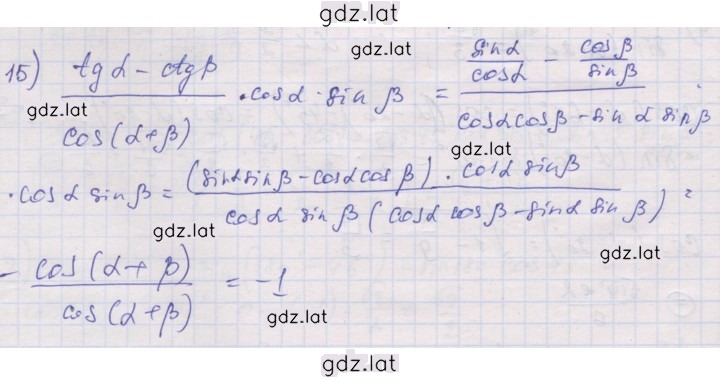 gdz.lat
15) (tg α - ctg β) / cos(α+β) · cos α · sin β = (sin α / cos α - cos β / sin β) / (cos α cos β - sin α sin β) ·
gdz.lat
gdz.lat
gdz.lat
· cos α sin β = ((sin α sin β - cos α cos β) · cos α sin β) / (cos α sin β (cos α cos β - sin α sin β)) =
gdz.lat
gdz.lat
- cos(α+β) / cos(α+β) = -1
gdz.lat
gdz.lat